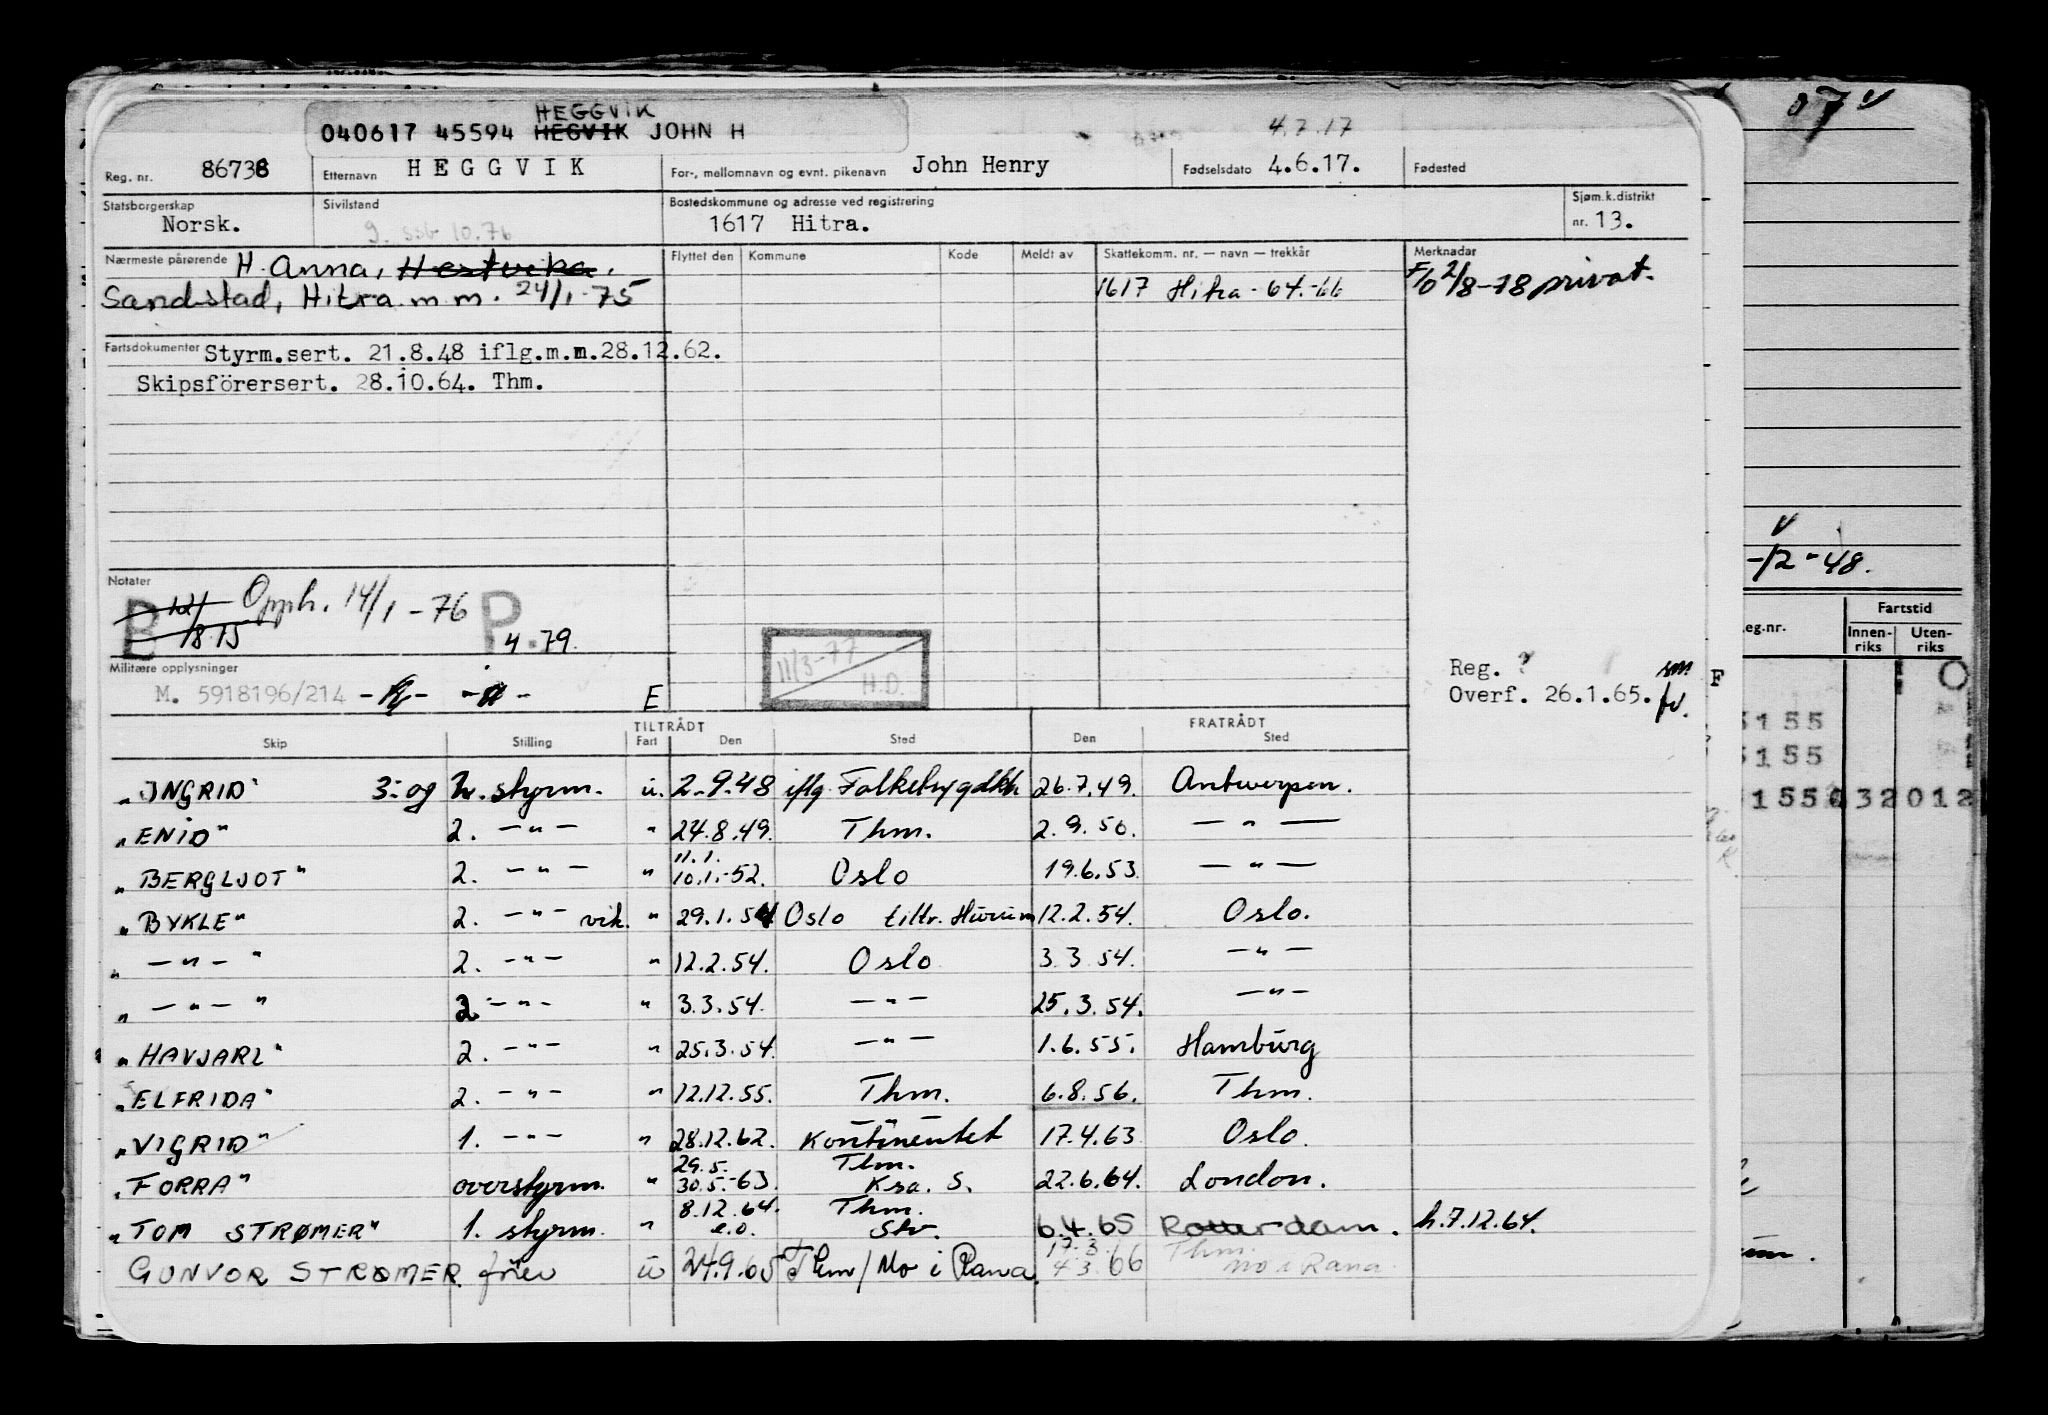 HEGGVIK
040617 45594 HEGVIK JOHN H
4.7.17
Reg. nr. 86738 Etternavn HEGGVIK For-, mellomnavn og evnt. pikenavn John Henry Fødselsdato 4.6.17. Fødested
Statsborgerskap Sivilstand Bostedskommune og adresse ved registrering Sjøm.k.distrikt
Norsk. g. ssb 10.76 1617 Hitra. nr. 13.
Nærmeste pårørende H. Anna, Hestvika. Flyttet den Kommune Kode Meldt av Skattekomm. nr. — navn — trekkår Merknader
Sandstad, Hitra m m. 24/1-75 1617 Hitra - 64.-66 F/o 2/8-78 privat.
Fartsdokumenter Styrm.sert. 21.8.48 iflg.m.m.28.12.62.
Skipsförersert. 28.10.64. Thm.
Notater
B 12/ Opph. 14/1-76 P.
18.15 4.79.
11/3-77
H.D.
Militære opplysninger
M. 5918196/214 E
Reg. ? sm
Overf. 26.1.65. fv.
TILTRÅDT FRATRÅDT
Skip Stilling Fart Den Sted Den Sted
"INGRID" 3. og 2. styrm. u. 2.9.48 iflg. Falkebygdkh 26.7.49. Antwerpen.
"ENID" 2. — " — " 24.8.49. Thm. 2.9.50. — " —
11.1.
"BERGLJOT" 2. — " — " 10.1.-52. Oslo 19.6.53. — " —
"BYKLE" 2. — " — vik. " 29.1.54 Oslo tiltr. Hurum 12.2.54. Oslo.
" — " — " 2. — " — " 12.2.54. Oslo 3.3.54. — " —
" — " — " 2. — " — " 3.3.54. — " — 25.3.54. — " —
"HAVJARL" 2. — " — " 25.3.54. — " — 1.6.55. Hamburg
"ELFRIDA" 2. — " — " 12.12.55. Thm. 6.8.56. Thm.
"VIGRID" 1. — " — " 28.12.62. Kontinentet 17.4.63 Oslo.
29.5. Thm.
"FORRA" overstyrm. " 30.5.-63. Ksa. S. 22.6.64. London.
8.12.64. Thm.
"TOM STRØMER" 1. styrm. " e.o. Stv. 6.4.65 Rotterdam. h.7.12.64.
17.3. Thm.
GUNVOR STRØMER. fører u 24.9.65 Thm/Mo i Rana. 4.3.66 Mo i Rana
074
-12-48.
eg.nr. Fartstid
Innen-riks Uten-riks
F
5155
5155
155 032 012